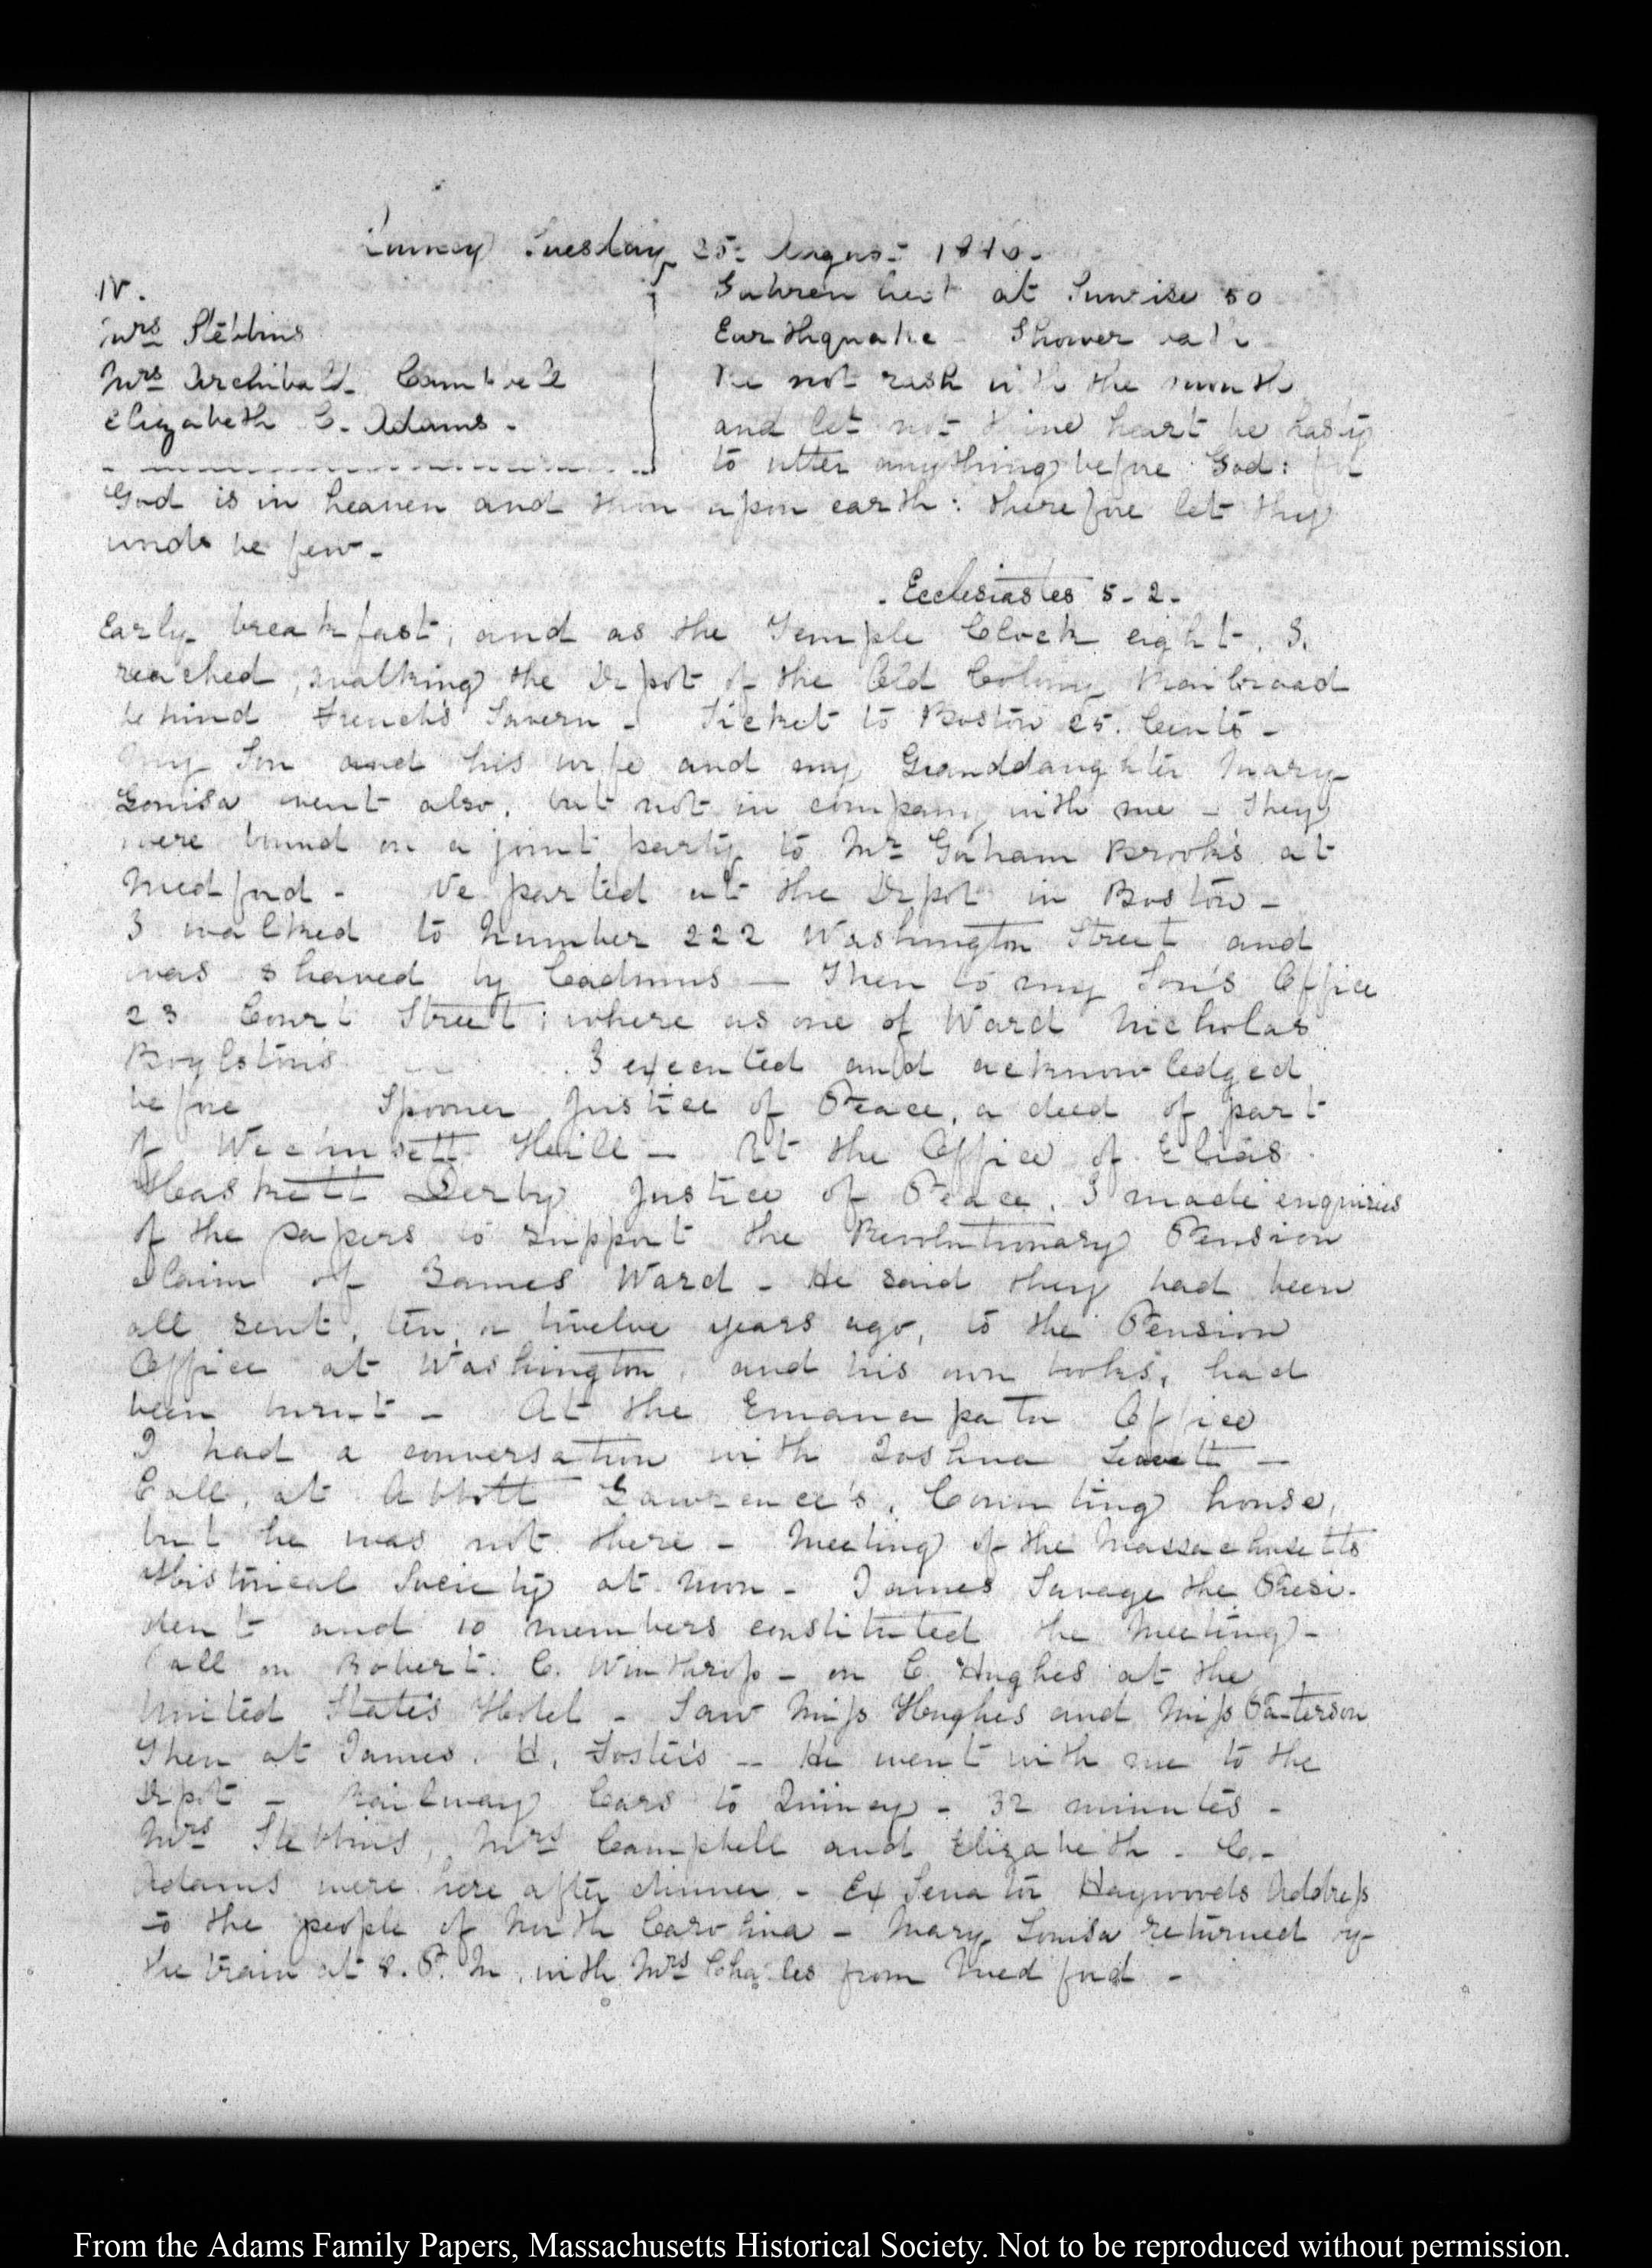 Quincy Tuesday 25. August 1846.
IV.
Mrs Stebbins
Mrs Archibald Campbell
Elizabeth C. Adams.
Fahrenheit at Sunrise 50
Earthquake - Shower bath
Be not rash with thy mouth
and let not thine heart be hasty
to utter anything before God: for
God is in heaven and thou upon earth: therefore let thy
words be few.
Ecclesiastes 5-2.
Early breakfast, and as the Temple Clock eight, I
reached, walking the Depot of the Old Colony Railroad
behind French's Tavern - Ticket to Boston 25. Cents -
My Son and his wife and my Granddaughter Mary
Louisa went also, but not in company with me - They
were bound on a joint party to Mr Gorham Brooks's at
Medford - We parted at the Depot in Boston -
I walked to Number 222 Washington Street and
was shaved by Cadmus - Then to my Son's Office
23 Court Street; where as one of Ward Nicholas
Boylston's I executed and acknowledged
before Spooner Justice of Peace, a deed of part
of Wachusett Hill - At the Office of Elias
Haskett Derby Justice of Peace. I made enquiries
of the papers to support the Revolutionary Pension
claim of James Ward - He said they had been
all sent, ten, or twelve years ago, to the Pension
Office at Washington, and his own books, had
been burnt - At the Emancipator Office
I had a conversation with Joshua Leavitt -
Call, at Abbott Lawrence's, Counting house,
but he was not there - Meeting of the Massachusetts
Historical Society at noon - James Savage the Presi-
dent and 10 members constituted the Meeting -
Call on Robert C. Winthrop - on C. Hughes at the
United States Hotel - Saw Miss Hughes and Miss Patterson
Then at James. H. Foster's - He went with me to the
Depot - Railway Cars to Quincy - 32 minutes -
Mrs Stebbins, Mrs Campbell and Elizabeth. C.
Adams were here after dinner - Ex Senator Haywoods Address
to the people of North Carolina - Mary Louisa returned by
the train at 8. P. M. with Mrs Charles from Medford -
From the Adams Family Papers, Massachusetts Historical Society. Not to be reproduced without permission.